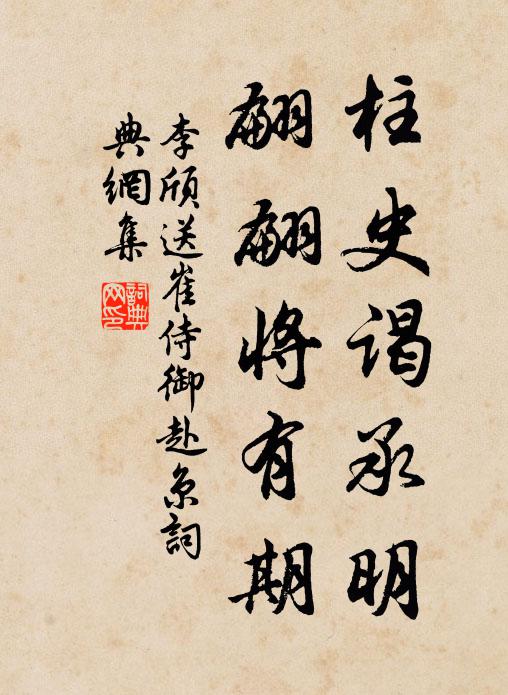 柱史謁承明
翩翩將有期
李頎送崔侍御赴京詞
典網集
詞典網印